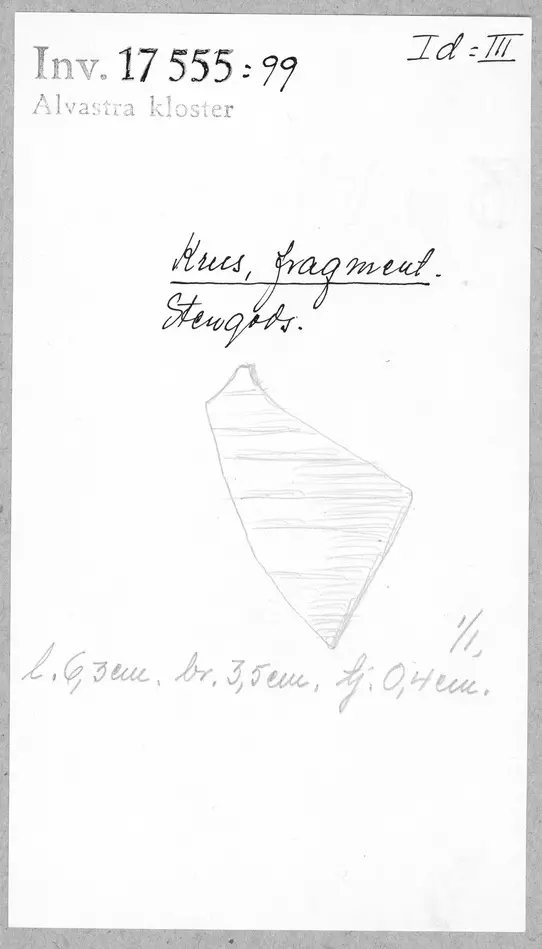 Inv. 17 555:99
Id = III
Alvastra kloster
Krus, fragment.
Stengods.
1/1.
l. 6,3 cm. br. 3,5 cm. tj. 0,4 cm.